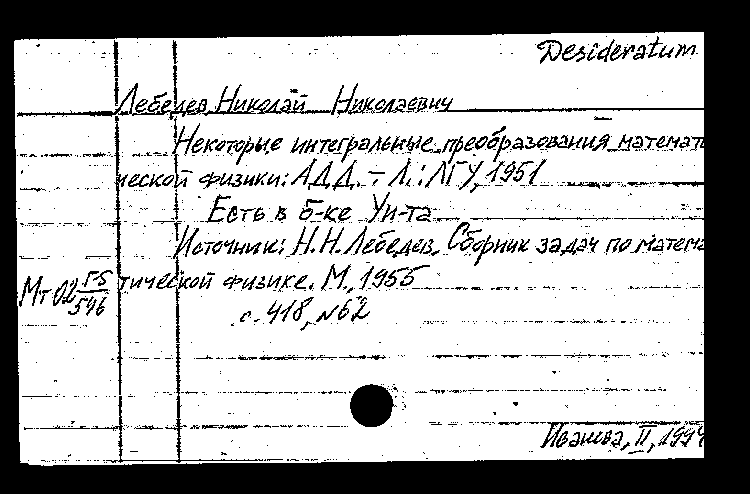 Desideratum
Лебедев, Николай Николаевич
Некоторые интегральные преобразования математи
ческой физики: АДД. – Л.: ЛГУ, 1951
Есть в б-ке Ун-та
Источник: Н.Н. Лебедев, Сборник задач по матема
тической физике. М., 1955
Мт 02 Г-5/546
с. 418, №62
II, 1994